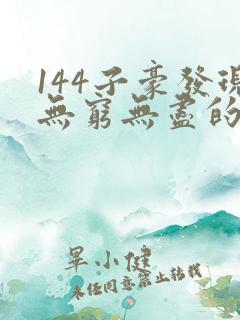 144子豪發現
無窮無盡的
畢小健
未經同意禁止轉載